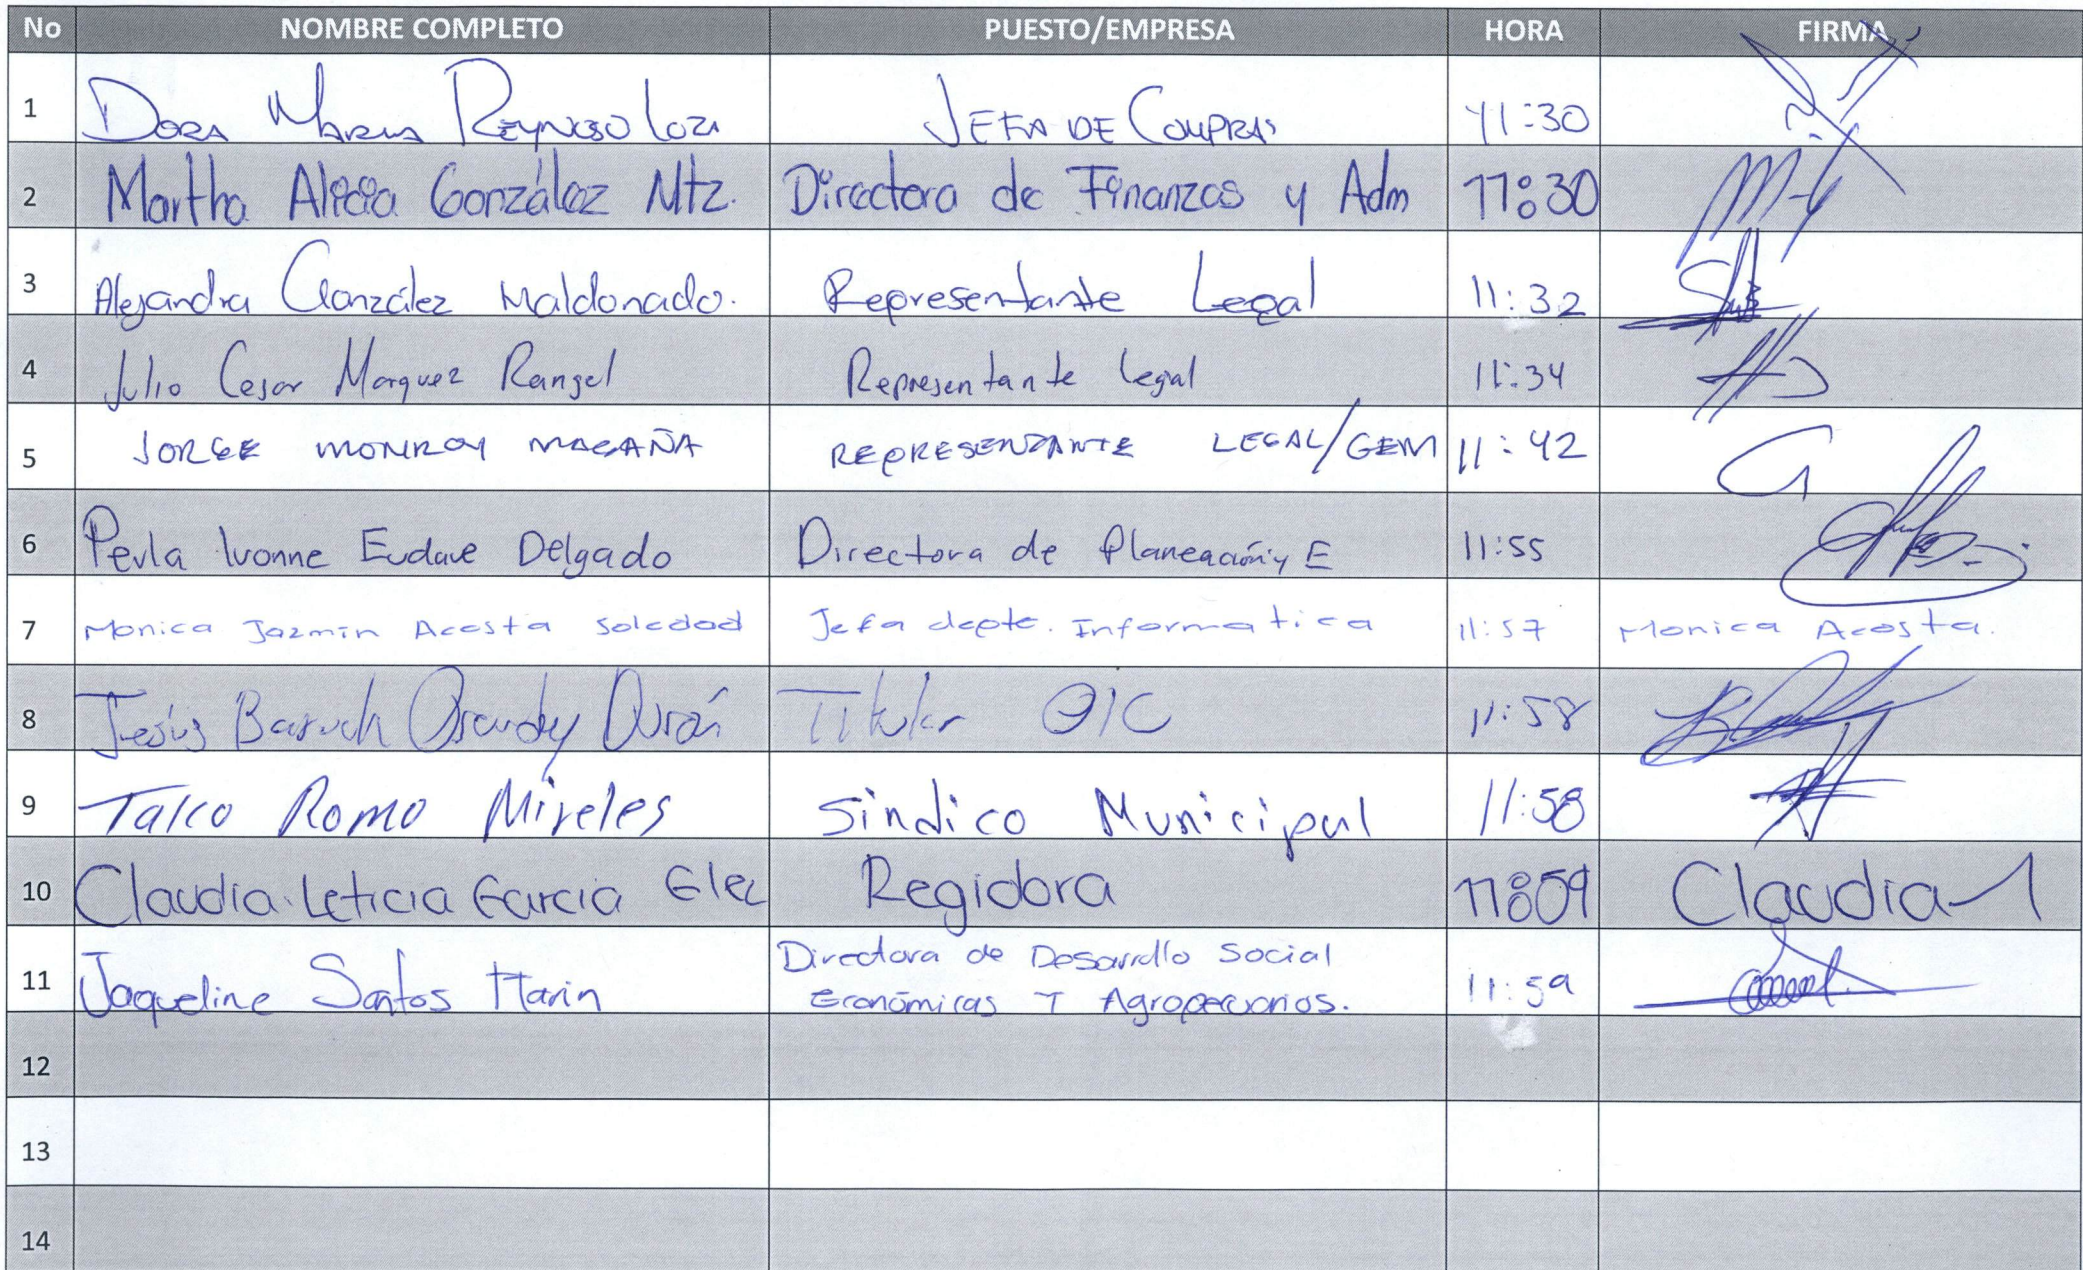 No NOMBRE COMPLETO PUESTO/EMPRESA HORA FIRMA
1 DORA MARIA REYNOSO JEFA DE COMPRAS 11:30
2 Martha Alicia González Mtz. Directora de Finanzas y Adm 11:30
3 Alejandra González Maldonado. Representante Legal 11:32
4 Julio Cesar Marquez Rangel Representante legal 11:34
5 JORGE MONROY MAGAÑA REPRESENTANTE LEGAL/GEM 11:42
6 Perla Ivonne Eudave Delgado Directora de Planeación y E 11:55
7 Monica Jazmin Acosta Soledad Jefa depto. Informatica 11:57 Monica Acosta.
8 Jesús Baruch Durán Titular OIC 11:58
9 Romo Mireles Sindico Municipal 11:58
10 Claudia Leticia Garcia Regidora 11:59 Claudia
11 Jaqueline Santos Marin Directora de Desarrollo Social
Económicas Y Agropecuarios. 11:59
12
13
14